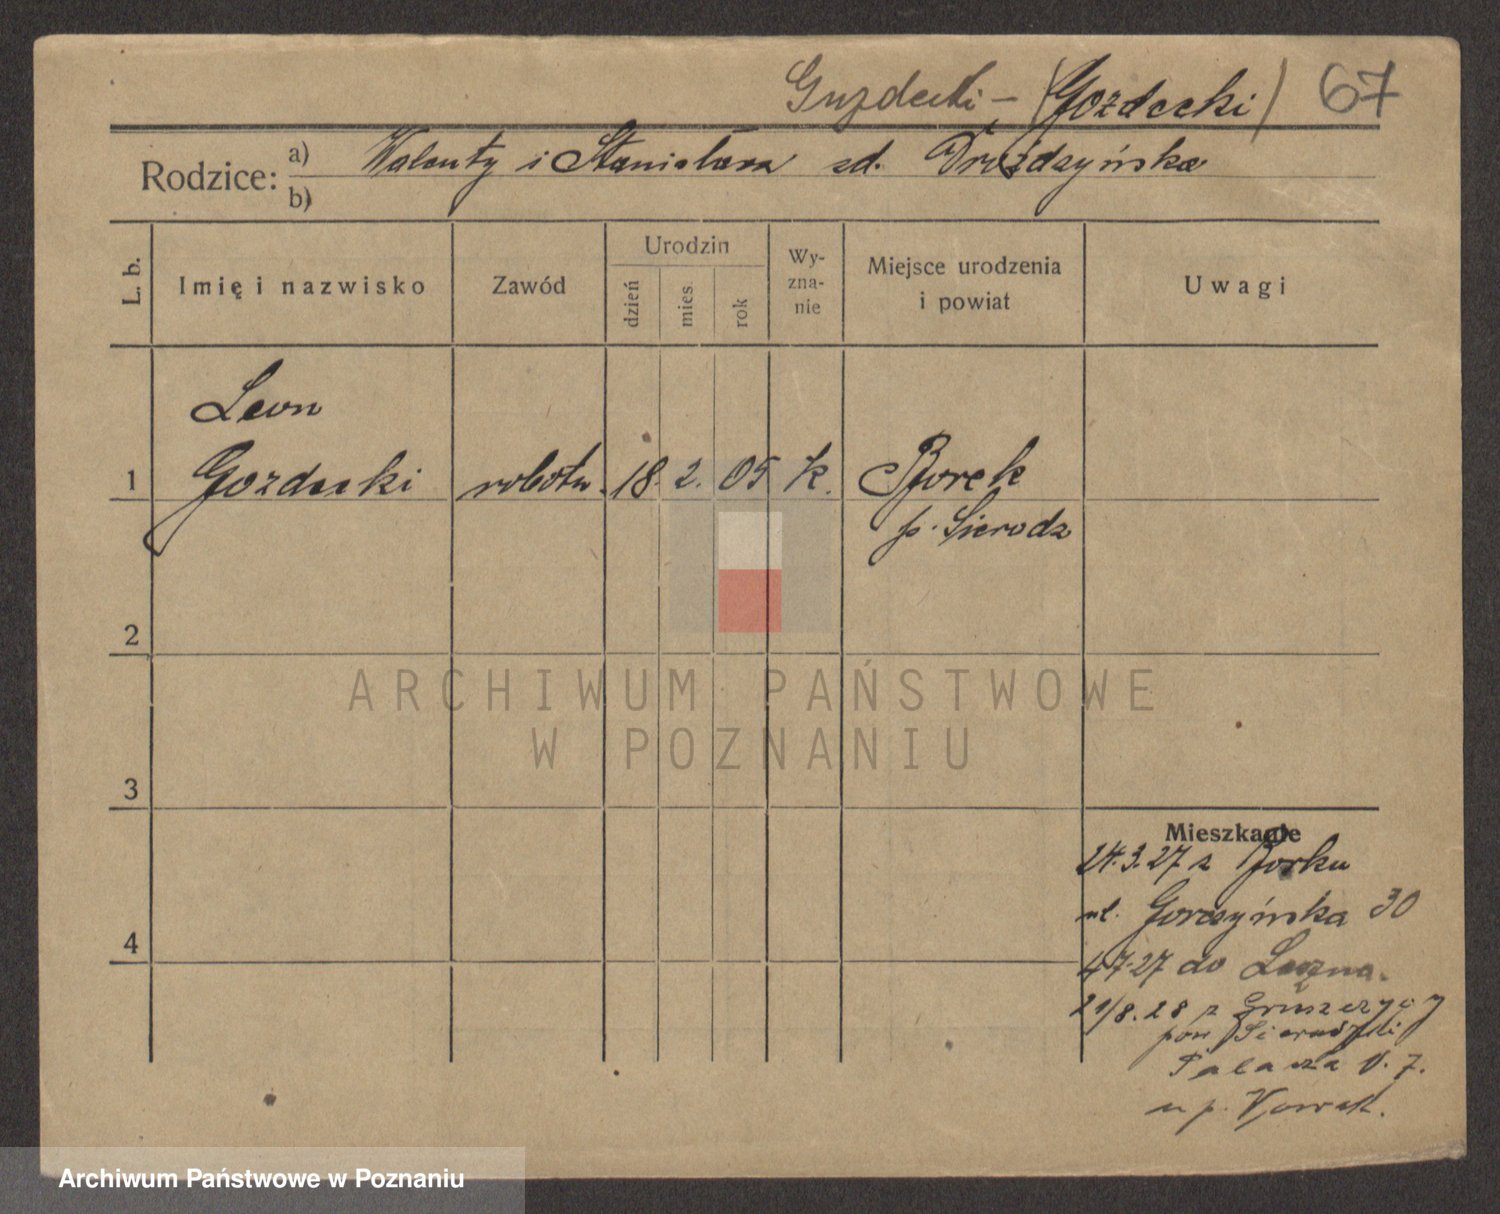 Guzdecki – (Gozdecki) 67
Rodzice: a) Walenty i Stanisława zd. Drużdzyńska
b)
L. b. Imię i nazwisko Zawód Urodzin dzień mies. rok Wy-zna-nie Miejsce urodzenia i powiat Uwagi
Leon
1 Gozdecki robotn. 18. 2. 05 k. Borek
p. Sieradz
2
ARCHIWUM PAŃSTWOWE
W POZNANIU
3
Mieszkanie
24.3.27 z Borku
ul. Gorczyńska 30
4
4.7.27 do
21/8.28 z Gruszczycy
pow Sieradzki
Palacza 7.
u p. Nowak.
Archiwum Państwowe w Poznaniu